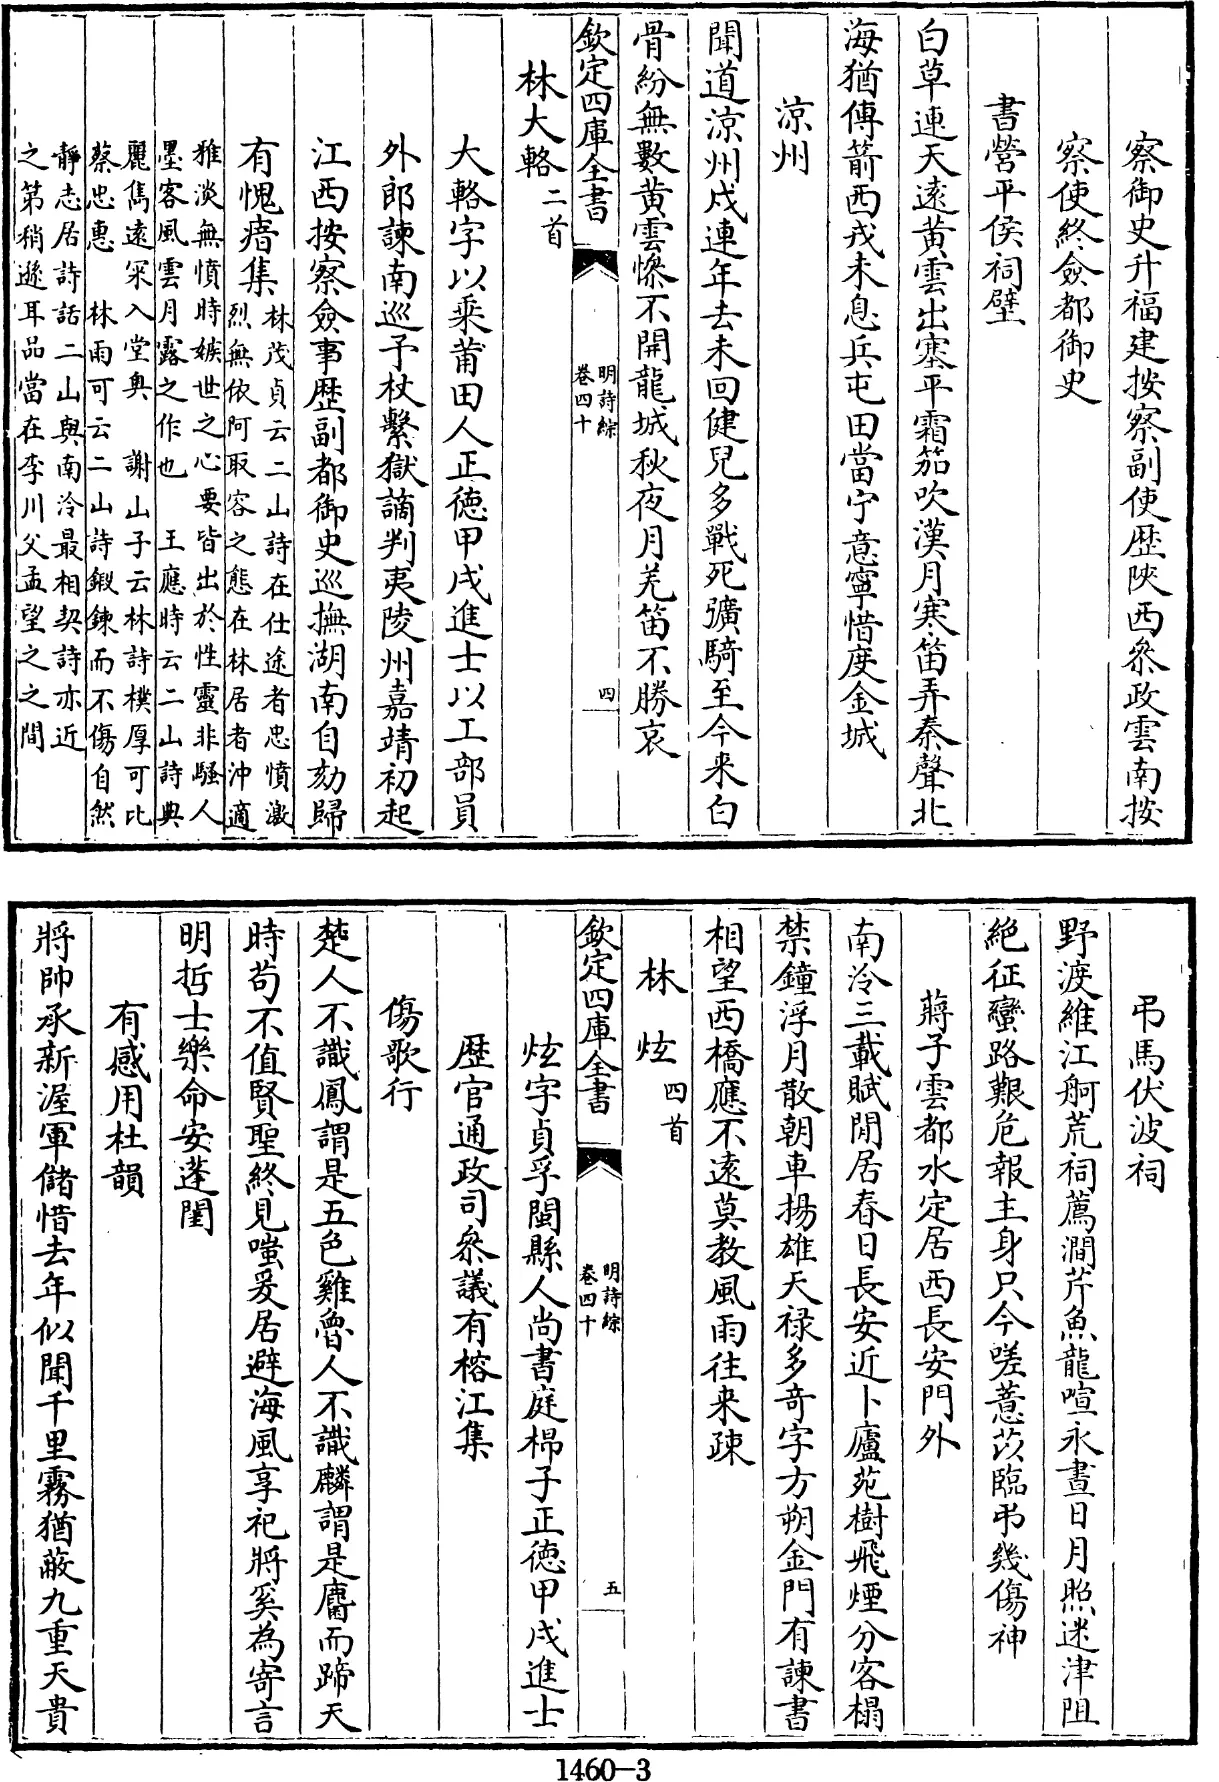 察御史升福建按察副使歴陜西叅政雲南按
察使終僉都御史
書營平侯祠壁
白草連天逺黄雲出塞平霜笳吹漢月寒笛弄秦聲北
海猶傳箭西戎未息兵屯田當宁意寧惜度金城
涼州
聞道涼州戍連年去未回健兒多戰死彍騎至今来白
骨紛無數黄雲慘不開龍城秋夜月羌笛不勝哀
欽定四庫全書
明詩綜
卷四十
四
林大輅二首
大輅字以乘莆田人正徳甲戌進士以工部員
外郎諫南巡予杖繫獄謫判夷陵州嘉靖初起
江西按察僉事歴副都御史巡撫湖南自劾歸
有愧瘖集
林茂貞云二山詩在仕途者忠憤激
烈無依阿取容之態在林居者沖適
雅淡無憤時嫉世之心要皆出於性靈非騷人
墨客風雲月露之作也　王應時云二山詩典
麗雋逺罙入堂奥　謝山子云林詩樸厚可比
蔡忠惠　林雨可云二山詩鍜鍊而不傷自然
靜志居詩話二山與南泠最相契詩亦近
之第稍遜耳品當在李川父孟望之之間
弔馬伏波祠
野渡維江舸荒祠薦澗芹魚龍喧永晝日月照迷津阻
絶征蠻路艱危報主身只今嗟薏苡臨弔幾傷神
蔣子雲都水定居西長安門外
南泠三載賦閒居春日長安近卜廬苑樹飛煙分客榻
禁鐘浮月散朝車揚雄天禄多竒字方朔金門有諫書
相望西橋應不逺莫教風雨往来疎
林炫四首
欽定四庫全書
明詩綜
卷四十
五
炫字貞孚閩縣人尚書庭㭿子正徳甲戌進士
歴官通政司叅議有榕江集
傷歌行
楚人不識鳳謂是五色雞魯人不識麟謂是麕而蹄天
時茍不值賢聖終見嗤爰居避海風享祀將奚為寄言
明哲士樂命安蓬閨
有感用杜韻
將帥承新渥軍儲惜去年似聞千里霧猶蔽九重天貴
1460—3